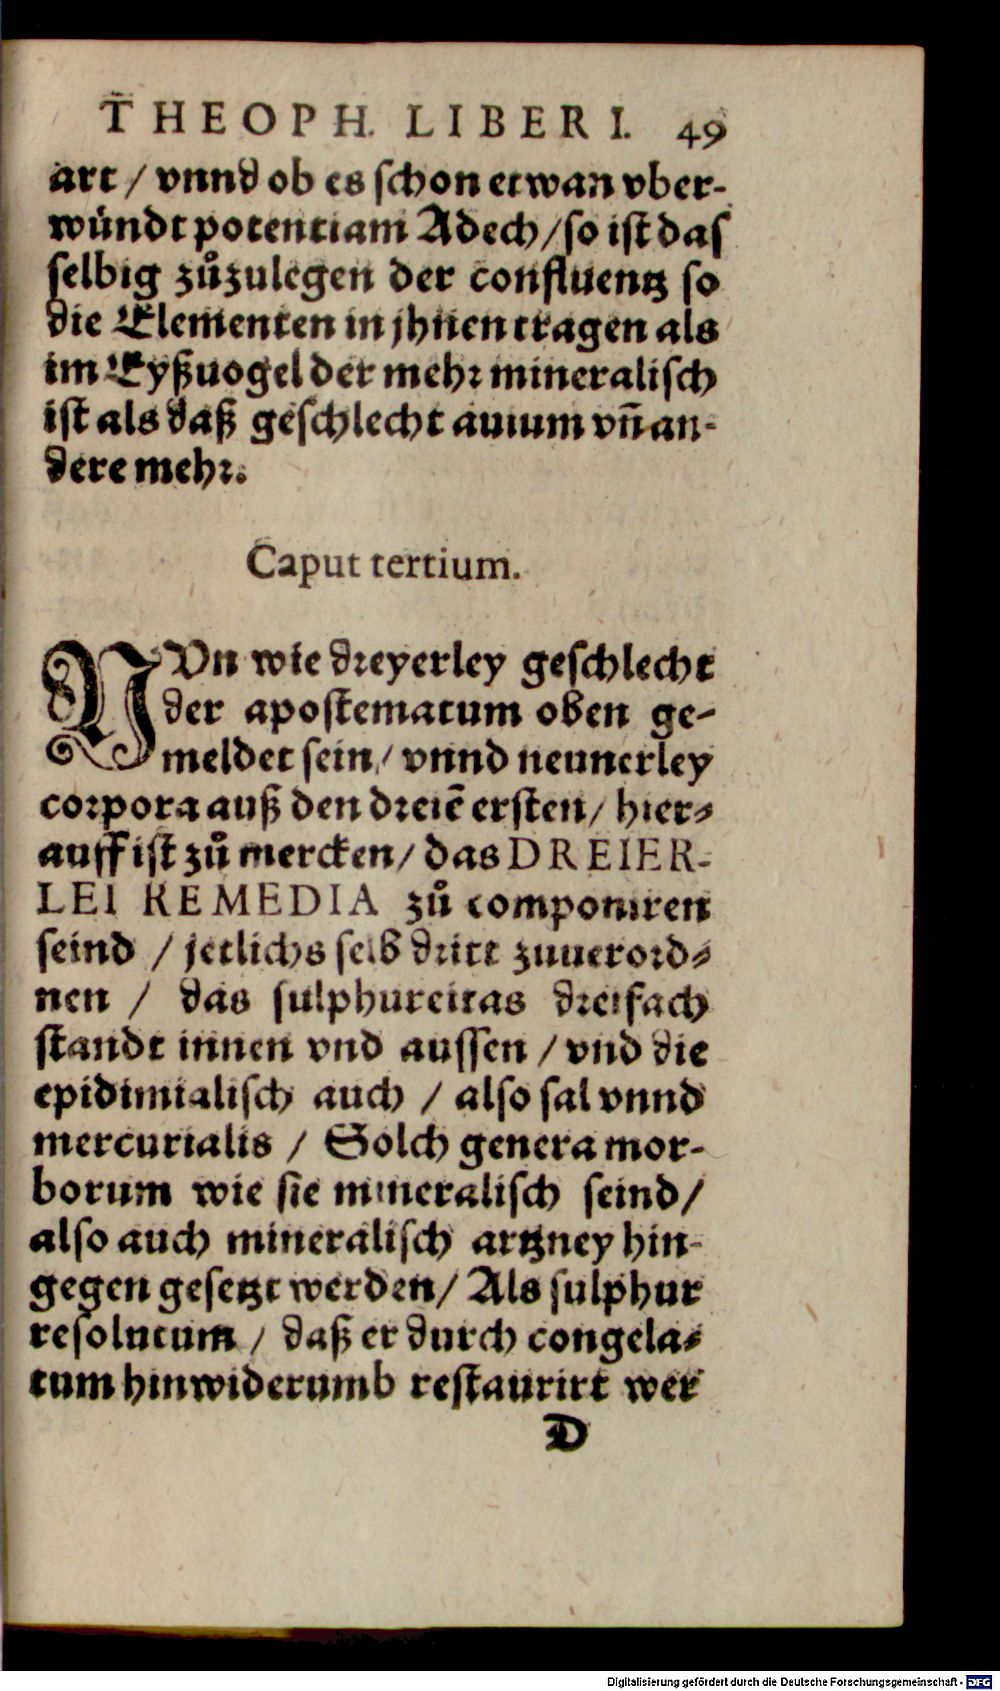 THEOPH. LIBER I. 49
art / vnnd ob es schon etwan vber-
wündt potentiam Adech / so ist das
selbig zůzulegen der confluentz so
die Elementen in jhnen tragen als
im Eyßuogel der mehr mineralisch
ist als daß geschlecht auium vñ an-
dere mehr.
Caput tertium.
NVn wie dreyerley geschlecht
der apostematum oben ge-
meldet sein / vnnd neunerley
corpora auß den dreiē ersten / hier-
auff ist zů mercken / das DREIER-
LEI REMEDIA zů componiren
seind / jetlichs selb dritt zuuerord-
nen / das sulphureitas dreifach
standt innen vnd aussen / vnd die
epidimialisch auch / also sal vnnd
mercurialis / Solch genera mor-
borum wie sie mineralisch seind /
also auch mineralisch artzney hin-
gegen gesetzt werden / Als sulphur
resolutum / daß er durch congela-
tum hinwiderumb restaurirt wer
D
Digitalisierung gefördert durch die Deutsche Forschungsgemeinschaft - DFG